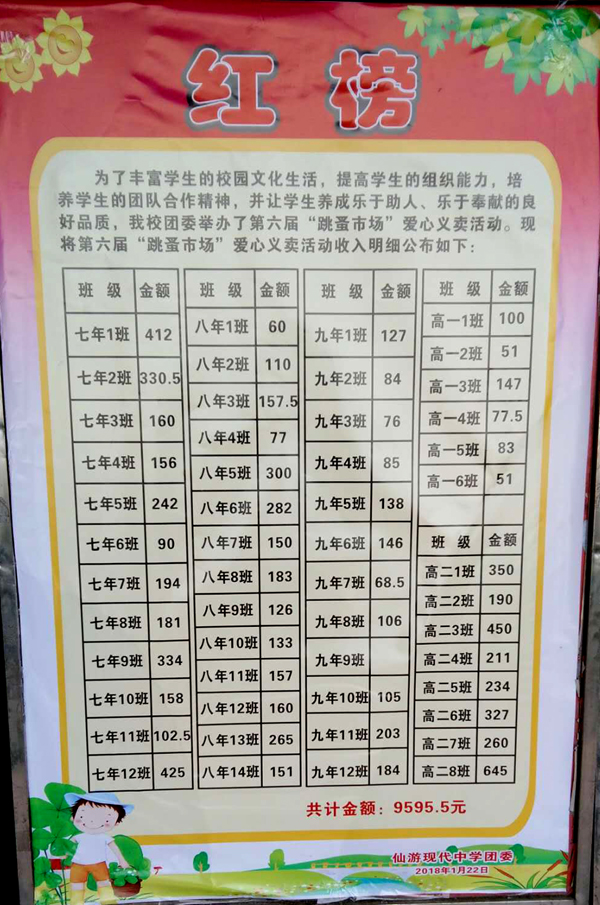 红榜
为了丰富学生的校园文化生活，提高学生的组织能力，培
养学生的团队合作精神，并让学生养成乐于助人、乐于奉献的良
好品质，我校团委举办了第六届“跳蚤市场”爱心义卖活动。现
将第六届“跳蚤市场”爱心义卖活动收入明细公布如下：
班 级 金额
七年1班 412
七年2班 330.5
七年3班 160
七年4班 156
七年5班 242
七年6班 90
七年7班 194
七年8班 181
七年9班 334
七年10班 158
七年11班 102.5
七年12班 425
班 级 金额
八年1班 60
八年2班 110
八年3班 157.5
八年4班 77
八年5班 300
八年6班 282
八年7班 150
八年8班 183
八年9班 126
八年10班 133
八年11班 157
八年12班 160
八年13班 265
八年14班 151
班 级 金额
九年1班 127
九年2班 84
九年3班 76
九年4班 85
九年5班 138
九年6班 146
九年7班 68.5
九年8班 106
九年9班
九年10班 105
九年11班 203
九年12班 184
班 级 金额
高一1班 100
高一2班 51
高一3班 147
高一4班 77.5
高一5班 83
高一6班 51
班 级 金额
高二1班 350
高二2班 190
高二3班 450
高二4班 211
高二5班 234
高二6班 327
高二7班 260
高二8班 645
共计金额：9595.5元
仙游现代中学团委
2018年1月22日